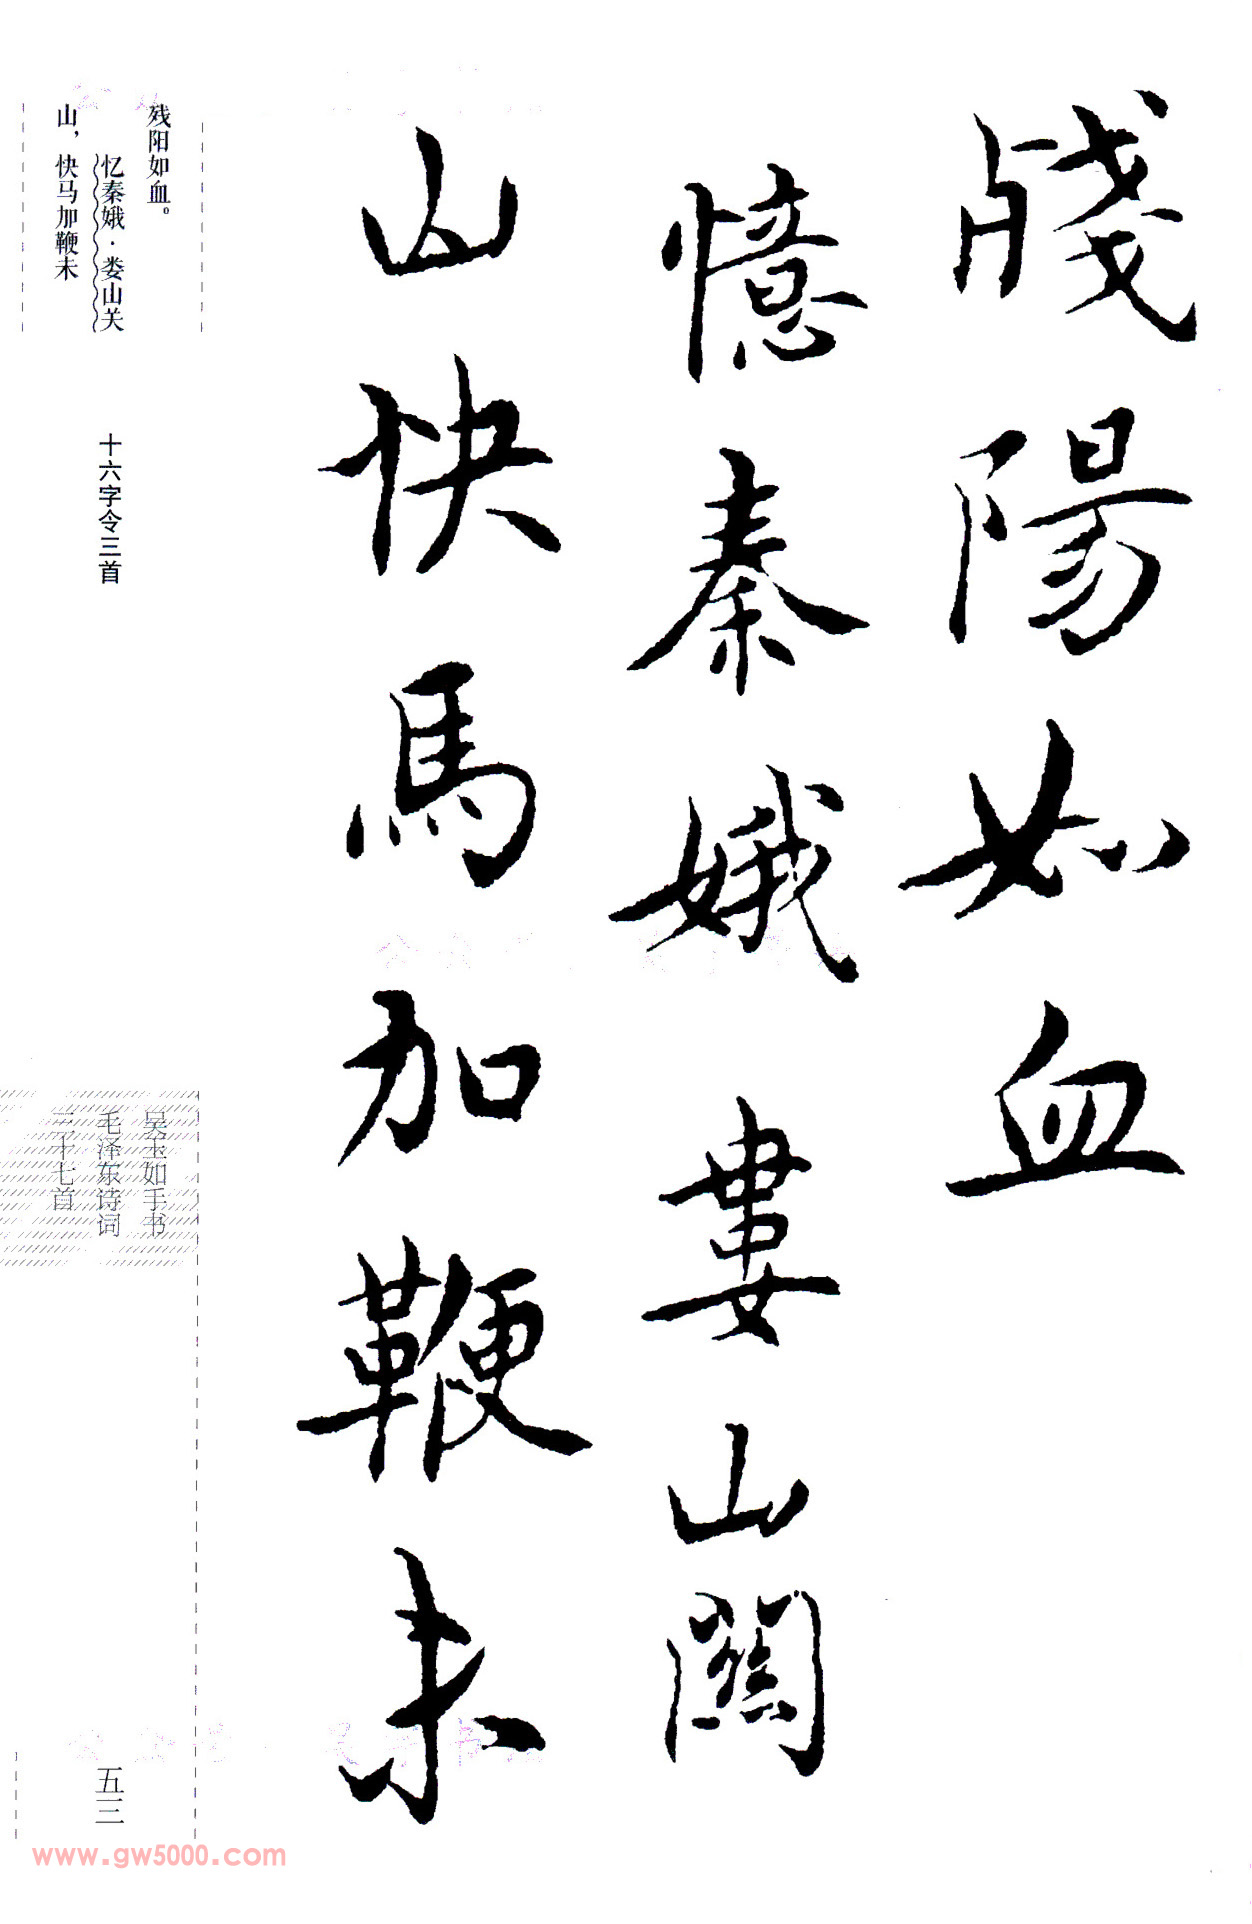 殘陽如血
憶秦娥婁山關
山快馬加鞭未
残阳如血。
忆秦娥·娄山关
山，快马加鞭未
十六字令三首
吴玉如手书
毛泽东诗词
三十七首
五三
www.gw5000.com